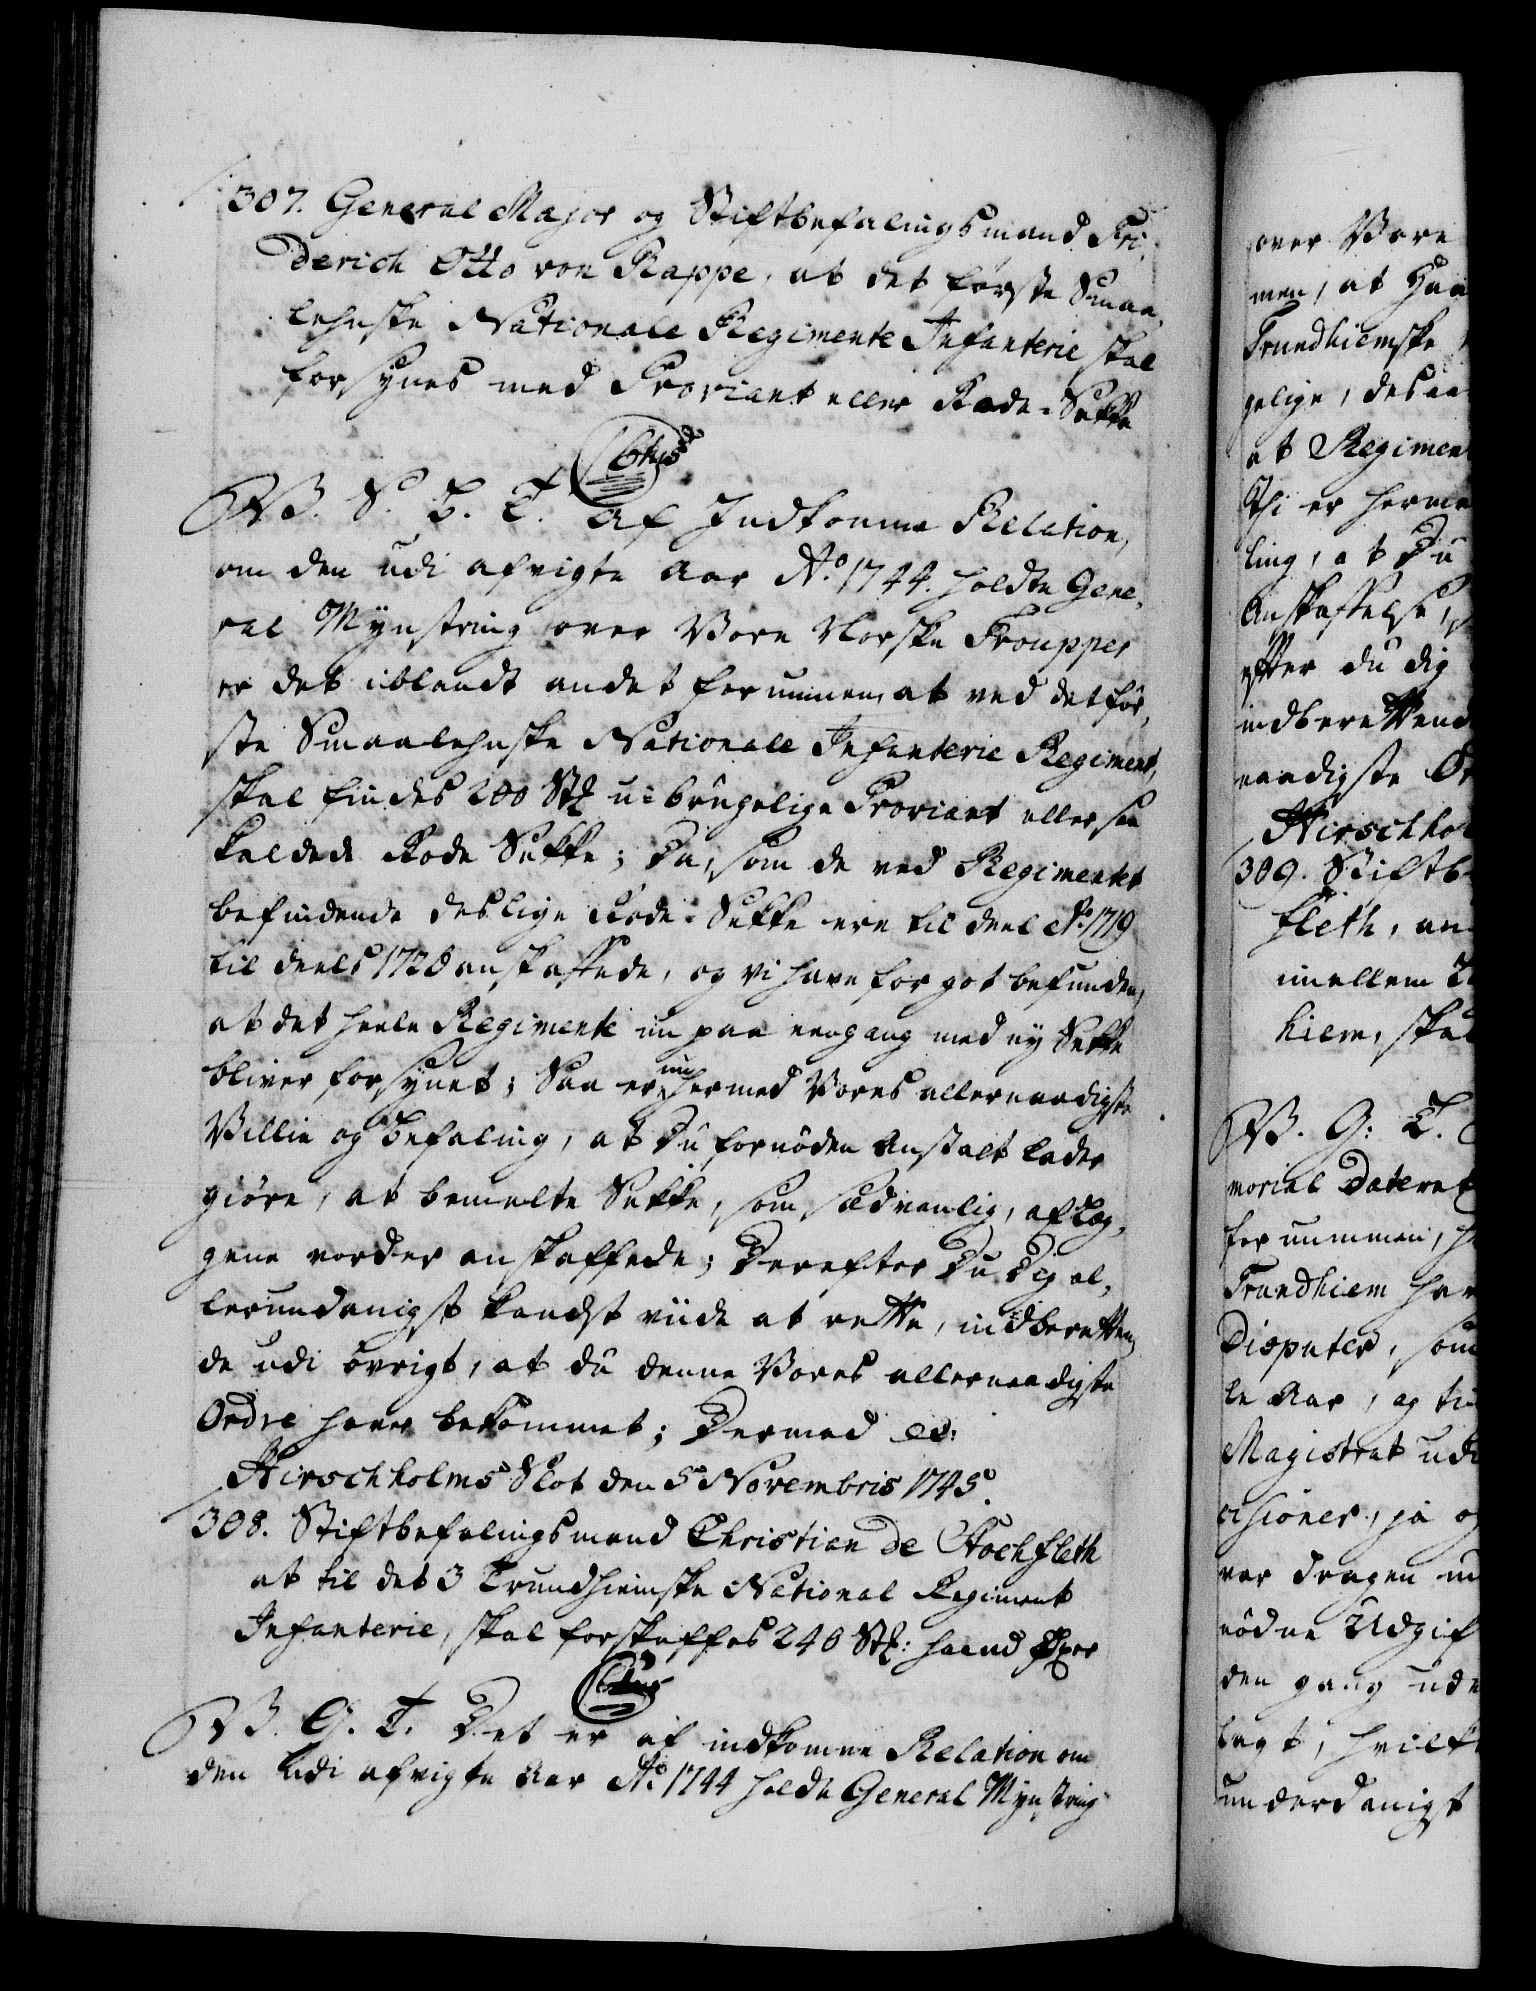 307. General Major og Stiftbefalingsmand Fri-
derich Otto von Rappe, at det første Smaa-
lehnske Nationale Regimente Infanterie skal
forsynes med Proviant eller Rode-Sække
W. S. B. T. Af Indkomne Relation,
om den udi afvigte Aar Ao. 1744. holdte Gene-
ral Mynstring over Vore Norske Trouppes
er det iblandt andet fornummen, at ved det før-
ste Smaalehnske Nationale Infanterie Regiment,
skal findes 200 Stk u-brugelige Proviant eller saa
kaldede Rode Sække; Da, som de ved Regimentet
befindende deslige Rode-Sække ere til deel Ao. 1719
til deels 1720 anskaffede, og vi have for got befunden,
at det heele Regimente nu paa eengang med ny Sække
bliver forsynet; Saa er nu hermed Vores allernaadigste
Villie og Befaling, at Du fornøden Anstalt lader
giøre, at bemelte Sække, som sædvanlig, af Læg-
gene vorder anskaffede; Derefter Du Dig al-
lerundanigst kandst viide at rette, indberetten-
de udi øvrigt, at du denne Vores allernaadigste
Ordre haver bekommet; Dermed etc:
Hirschholms Slot den 5 Novembris 1745.
308. Stiftbefalingsmand Christian de Stochfleth
at til det 3 Trundhiemske National Regiment
Infanterie, skal forskaffes 240 Stk: haand Øxer
W. G. T. Det er af indkomne Relation om
den udi afvigte Aar Ao. 1744 holdte General Mynstring
over Vore
men, at Haa
Trundhiemske
gelige, desaa
at Regimen
Thi er herme
ling, at Du
Anskaffelse,
efter du dig
indberettend
naadigste Or
Hirschhol
309. Stiftb
fleth, an
imellem T
hiem, skal
W. G: T.
morial Dateret
fornummen, h
Trundhiem har
Disputer, som
le Aar, og ti
Magistrat udi
ver dragen u
nødne Udgif
den gang ude
lagt, hvilk
underdanigst